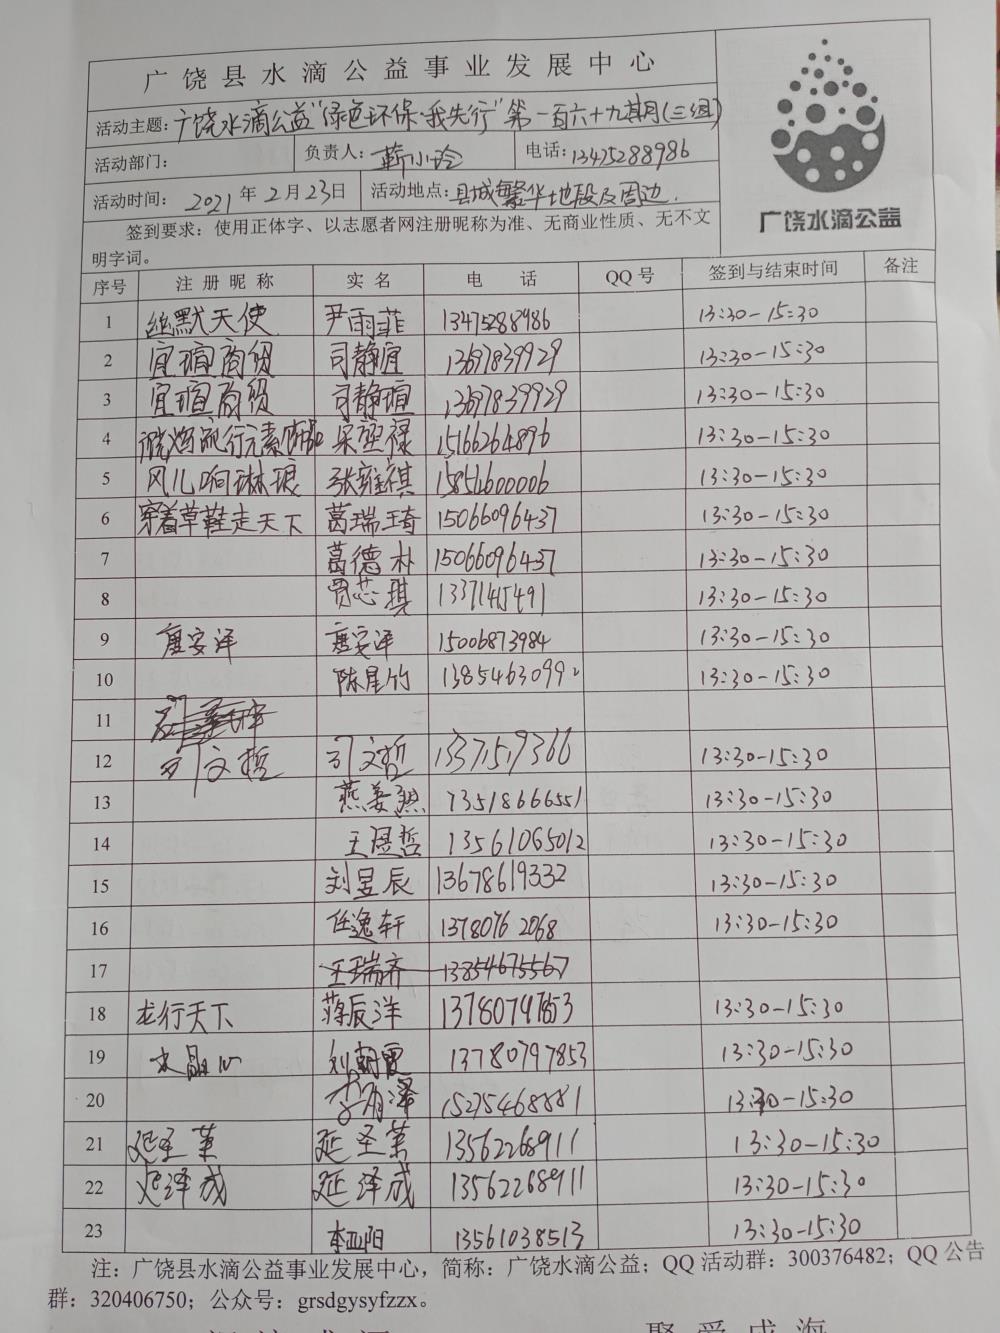 广饶县水滴公益事业发展中心
活动主题：广饶水滴公益"绿色环保·我先行"第一百六十九期(三组)
活动部门： 负责人：靳小玲 电话：13475288986
活动时间：2021年2月23日 活动地点：县城繁华地段及周边.
签到要求：使用正体字、以志愿者网注册昵称为准、无商业性质、无不文
明字词。
广饶水滴公益
序号 注册昵称 实名 电话 QQ号 签到与结束时间 备注
1 幽默天使 尹雨菲 13475288986 13:30-15:30
2 宜瑄商贸 司静宜 13697839929 13:30-15:30
3 宜瑄商贸 司静瑄 13697839929 13:30-15:30
4 流行元素 15166264896 13:30-15:30
5 风儿响琳琅 张雍祺 15854600006 13:30-15:30
6 穿着草鞋走天下 葛瑞琦 15066096437 13:30-15:30
7 葛德朴 15066096437 13:30-15:30
8 贾芯琪 13371415491 13:30-15:30
9 唐安泽 唐安泽 15006873984 13:30-15:30
10 陈星竹 13854630992 13:30-15:30
11
12 司文哲 司文哲 13371519366 13:30-15:30
13 燕姜 13518666551 13:30-15:30
14 王煜哲 13561065012 13:30-15:30
15 刘昱辰 13678619332 13:30-15:30
16 任逸轩 13780762068 13:30-15:30
17 王瑞齐 13854675567
18 龙行天下 蒋辰洋 13780797853 13:30-15:30
19 水晶心 刘朝霞 13780797853 13:30-15:30
20 李有泽 15275468881 13:30-15:30
21 延圣莱 延圣莱 13562268911 13:30-15:30
22 延泽成 延泽成 13562268911 13:30-15:30
23 李亚阳 13561038513 13:30-15:30
注：广饶县水滴公益事业发展中心，简称：广饶水滴公益；QQ活动群：300376482；QQ公告
群：320406750；公众号：grsdgysyfzzx。
聚爱成海